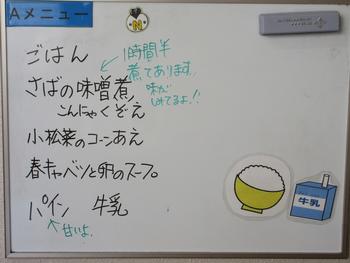 Aメニュー
N
ごはん
1時間半
煮てあります
味が
しみてるよ!!
さばの味噌煮
こんにゃくぞえ
小松菜のコーンあえ
春キャベツと卵のスープ。
パイン 牛乳
甘いよ。
牛乳